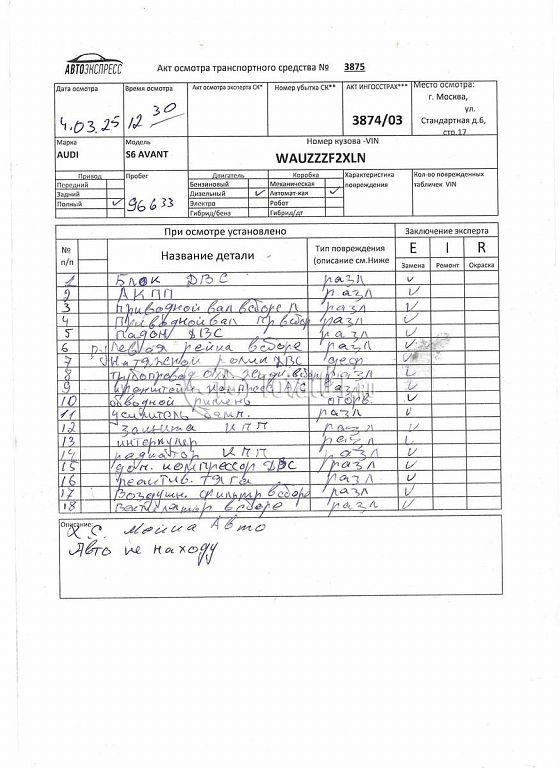 АВТОЭКСПРЕСС
Акт осмотра транспортного средства № 3875
Дата осмотра Время осмотра Акт осмотра эксперта СК* Номер убытка СК** АКТ ИНГОССТРАХ*** Место осмотра:
4.03.25 12 30 3874/03 г. Москва, ул. Стандартная д.6, стр.17
Марка Модель Номер кузова -VIN
AUDI S6 AVANT WAUZZZF2XLN
Привод Пробег Двигатель Коробка Характеристика повреждения Кол-во поврежденных табличек VIN
Передний Бензиновый Механическая
Задний Дизельный ✓ Автомат-кая ✓
Полный ✓ 96633 Электро Робот
Гибрид/бенз Гибрид/дт
При осмотре установлено Заключение эксперта
№ п/п Название детали Тип повреждения (описание см.Ниже E I R
Замена Ремонт Окраска
1 Блок ДВС разл ✓
2 АКПП разл ✓
3 Приводной вал в сборе л разл ✓
4 Приводной вал пр в сбор разл ✓
5 Падон ДВС разл ✓
6 Левая рейка в сборе разл ✓
7 Натяжной ролик ДВС деф ✓
8 трубопровод разл ✓
9 кронштейн компресс разл ✓
10 обводной ремень оторв. ✓
11 усилитель разл ✓
12 Защита КПП разл ✓
13 интеркулер разл ✓
14 радиатор КПП разл ✓
15 доп. компрессор ДВС разл ✓
16 реактив. тяга разл ✓
17 Воздушн. фильтр в сборе разл ✓
18 Вентилятор в сборе разл ✓
Описание:
Х.С. Мойка Авто
Авто не находу